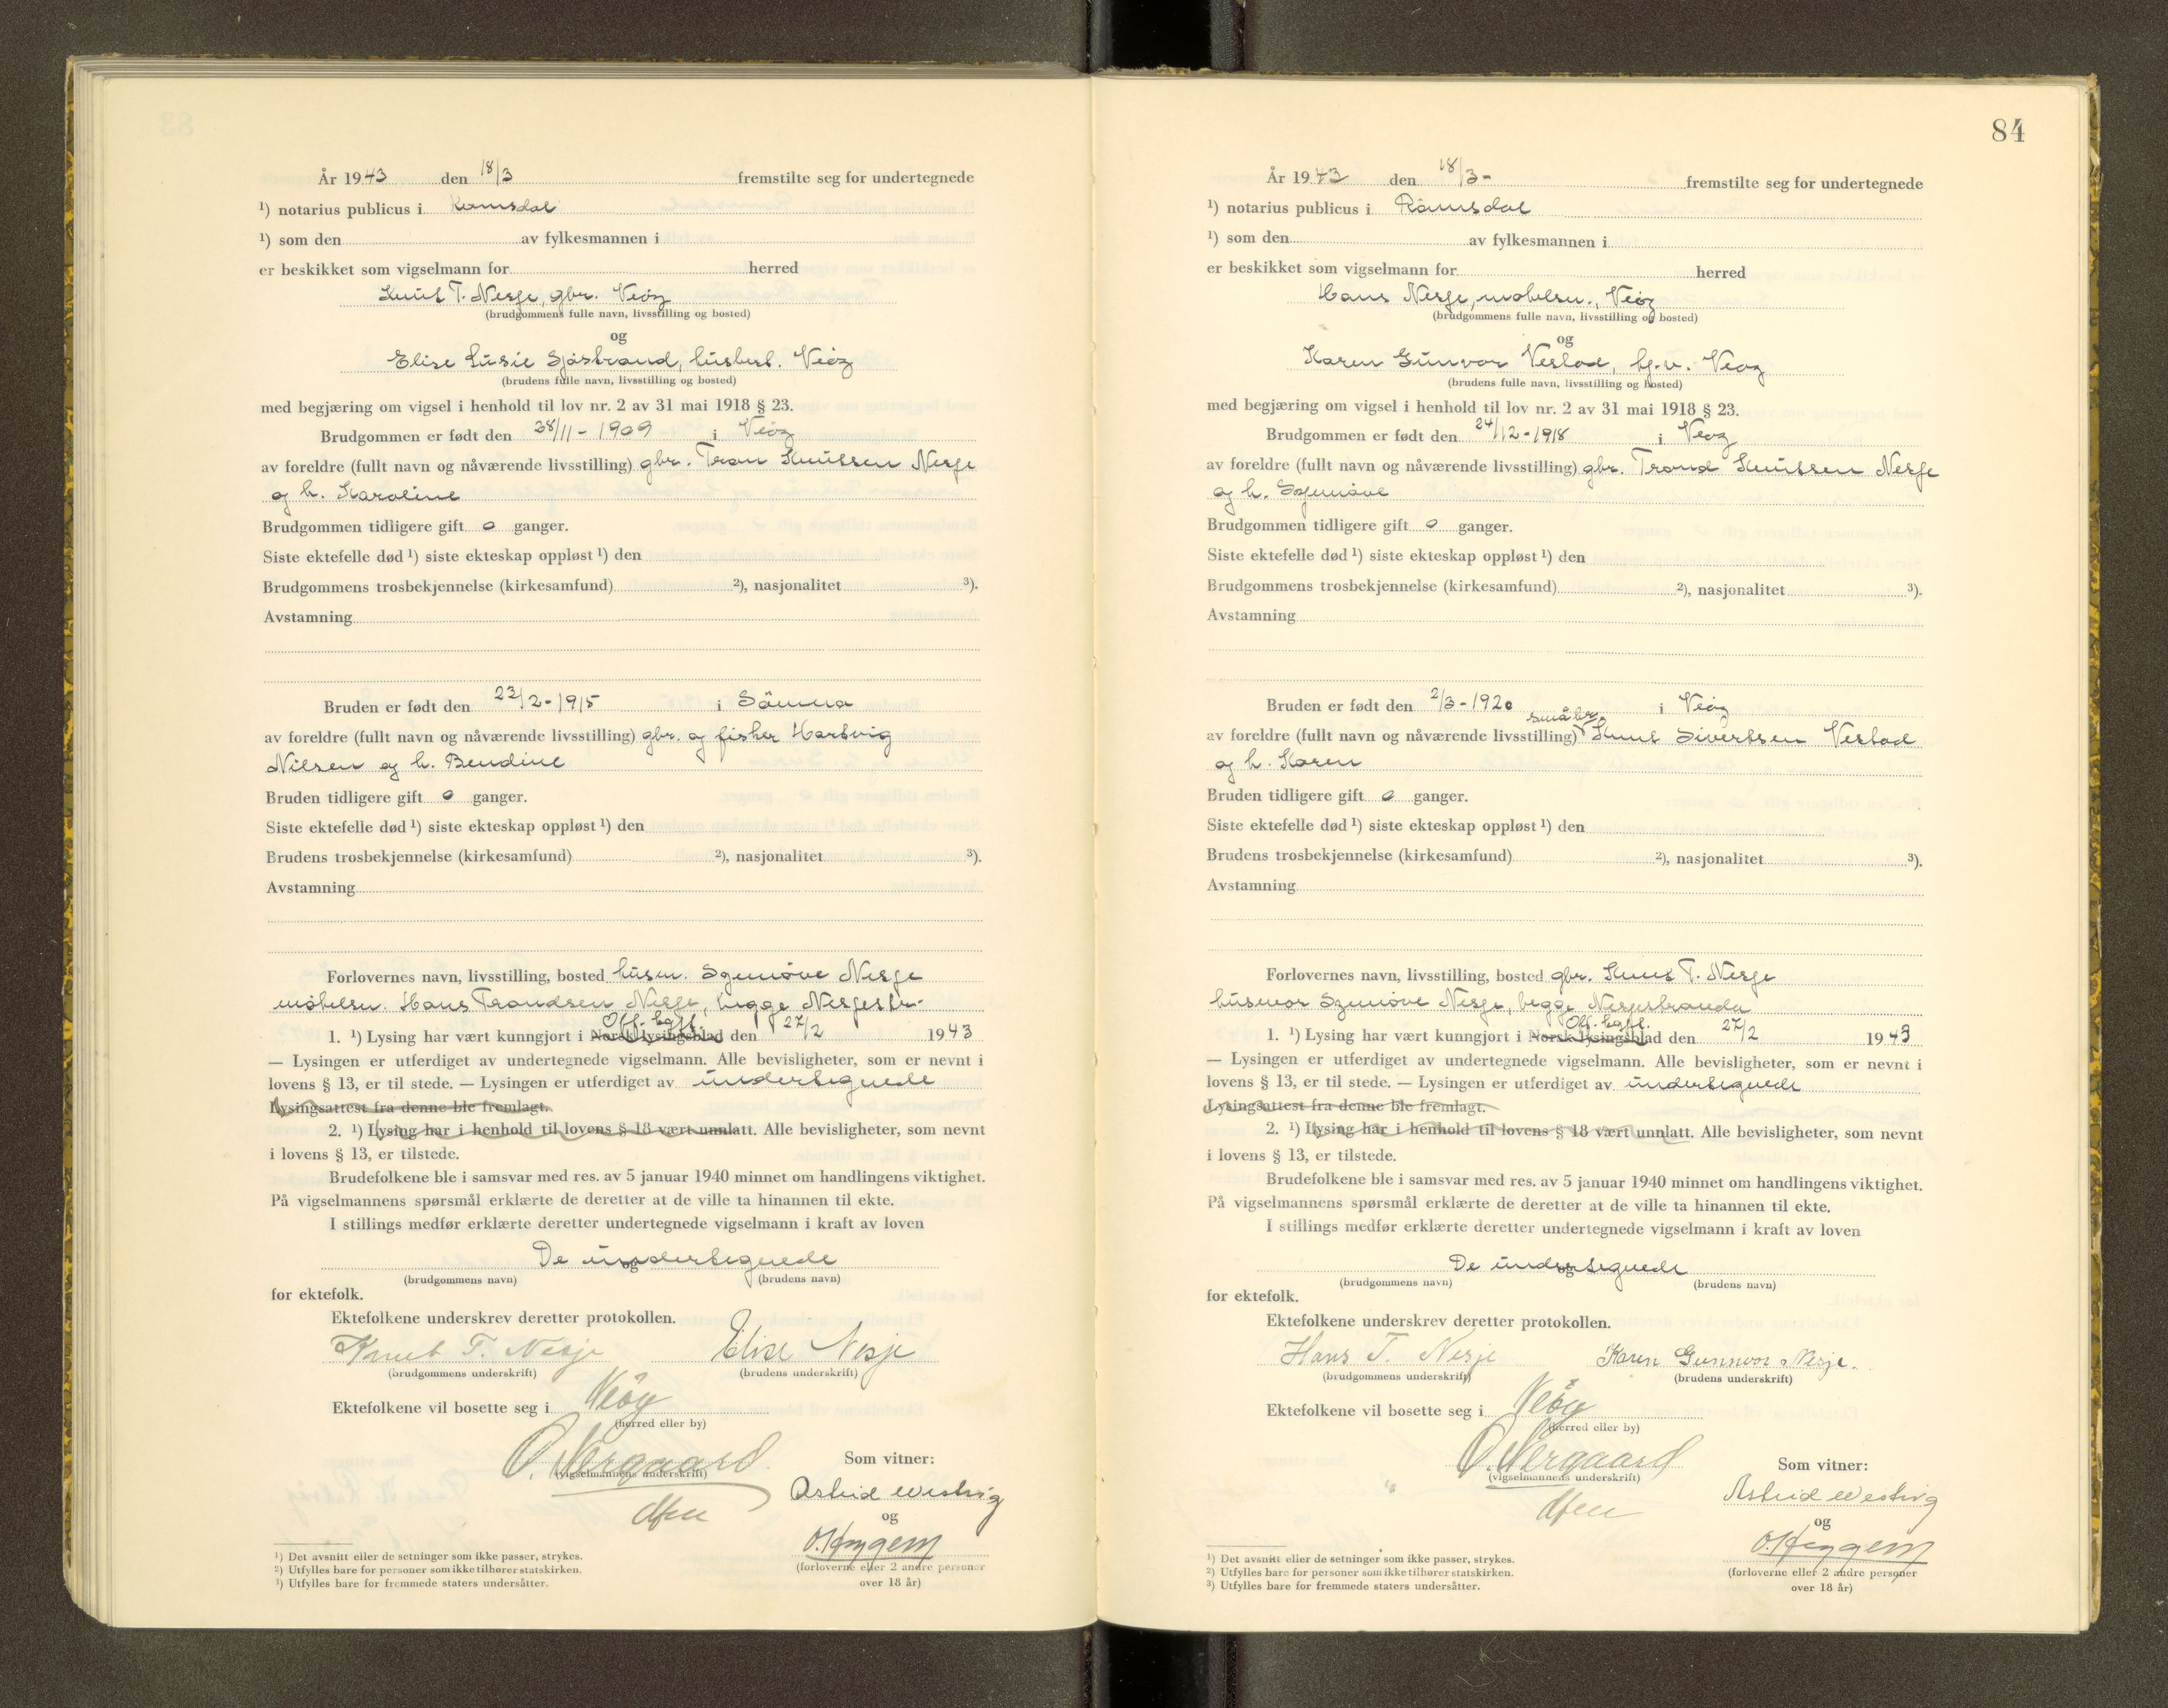 År 1943 den 18/3 fremstilte seg for undertegnede
¹) notarius publicus i Romsdal
¹) som den av fylkesmannen i
er beskikket som vigselmann for herred
Knut T. Nesje, gbr. Veöy
(brudgommens fulle navn, livsstilling og bosted)
og
Elise Lusie Sjåstrand, husbest. Veöy
(brudens fulle navn, livsstilling og bosted)
med begjæring om vigsel i henhold til lov nr. 2 av 31 mai 1918 § 23.
Brudgommen er født den 28/11 - 1909 i Veöy
av foreldre (fullt navn og nåværende livsstilling) gbr. Tron Knutsen Nesje
og h. Karoline
Brudgommen tidligere gift 0 ganger.
Siste ektefelle død ¹) siste ekteskap oppløst ¹) den
Brudgommens trosbekjennelse (kirkesamfund) ²), nasjonalitet ³).
Avstamning
Bruden er født den 23/2 - 1915 i Sömna
av foreldre (fullt navn og nåværende livsstilling) gbr. og fisker Hartvig
Nilsen og h. Bendine
Bruden tidligere gift 0 ganger.
Siste ektefelle død ¹) siste ekteskap oppløst ¹) den
Brudens trosbekjennelse (kirkesamfund) ²), nasjonalitet ³).
Avstamning
Forlovernes navn, livsstilling, bosted husm. Synnöve Nesje
möbelsn. Hans Trondsen Nesje, begge Nesjestr.
Off. kgjl.
1. ¹) Lysing har vært kunngjort i Norsk lysingsblad den 27/2 1943
— Lysingen er utferdiget av undertegnede vigselmann. Alle bevisligheter, som er nevnt i
lovens § 13, er til stede. — Lysingen er utferdiget av undertegnede
Lysingsattest fra denne ble fremlagt.
2. ¹) Lysing har i henhold til lovens § 18 vært unnlatt. Alle bevisligheter, som nevnt
i lovens § 13, er tilstede.
Brudefolkene ble i samsvar med res. av 5 januar 1940 minnet om handlingens viktighet.
På vigselmannens spørsmål erklærte de deretter at de ville ta hinannen til ekte.
I stillings medfør erklærte deretter undertegnede vigselmann i kraft av loven
De undertegnede
og
(brudgommens navn) (brudens navn)
for ektefolk.
Ektefolkene underskrev deretter protokollen.
Knut T. Nesje Elise Nesje
(brudgommens underskrift) (brudens underskrift)
Ektefolkene vil bosette seg i Veöy
(herred eller by)
O. Nergaard
(vigselmannens underskrift)
Som vitner:
Astrid Westvig
og
O. Heggem
(forloverne eller 2 andre personer
over 18 år)
¹) Det avsnitt eller de setninger som ikke passer, strykes.
²) Utfylles bare for personer som ikke tilhører statskirken.
³) Utfylles bare for fremmede staters undersåtter.
84
År 1943 den 18/3- fremstilte seg for undertegnede
¹) notarius publicus i Romsdal
¹) som den av fylkesmannen i
er beskikket som vigselmann for herred
Hans Nesje, möbelsn., Veöy
(brudgommens fulle navn, livsstilling og bosted)
og
Karen Gunvor Vestad, hj.v. Veöy
(brudens fulle navn, livsstilling og bosted)
med begjæring om vigsel i henhold til lov nr. 2 av 31 mai 1918 § 23.
Brudgommen er født den 24/12 - 1918 i Veöy
av foreldre (fullt navn og nåværende livsstilling) gbr. Trond Knutsen Nesje
og h. Synnöve
Brudgommen tidligere gift 0 ganger.
Siste ektefelle død ¹) siste ekteskap oppløst ¹) den
Brudgommens trosbekjennelse (kirkesamfund) ²), nasjonalitet ³).
Avstamning
Bruden er født den 2/3 - 1920 i Veöy
småbr.
av foreldre (fullt navn og nåværende livsstilling) Knut Sivertsen Vestad
og h. Karen
Bruden tidligere gift 0 ganger.
Siste ektefelle død ¹) siste ekteskap oppløst ¹) den
Brudens trosbekjennelse (kirkesamfund) ²), nasjonalitet ³).
Avstamning
Forlovernes navn, livsstilling, bosted gbr. Knut T. Nesje
husmor Synnöve Nesje, begge Nesjestranda
Off. kgjl.
1. ¹) Lysing har vært kunngjort i Norsk lysingsblad den 27/2 1943
— Lysingen er utferdiget av undertegnede vigselmann. Alle bevisligheter, som er nevnt i
lovens § 13, er til stede. — Lysingen er utferdiget av undertegnede
Lysingsattest fra denne ble fremlagt.
2. ¹) Lysing har i henhold til lovens § 18 vært unnlatt. Alle bevisligheter, som nevnt
i lovens § 13, er tilstede.
Brudefolkene ble i samsvar med res. av 5 januar 1940 minnet om handlingens viktighet.
På vigselmannens spørsmål erklærte de deretter at de ville ta hinannen til ekte.
I stillings medfør erklærte deretter undertegnede vigselmann i kraft av loven
De undertegnede
og
(brudgommens navn) (brudens navn)
for ektefolk.
Ektefolkene underskrev deretter protokollen.
Hans T. Nesje Karen Gunnvor Nesje.
(brudgommens underskrift) (brudens underskrift)
Ektefolkene vil bosette seg i Veöy
(herred eller by)
O. Nergaard
(vigselmannens underskrift)
Som vitner:
Astrid Westvig
og
O. Heggem
(forloverne eller 2 andre personer
over 18 år)
¹) Det avsnitt eller de setninger som ikke passer, strykes.
²) Utfylles bare for personer som ikke tilhører statskirken.
³) Utfylles bare for fremmede staters undersåtter.